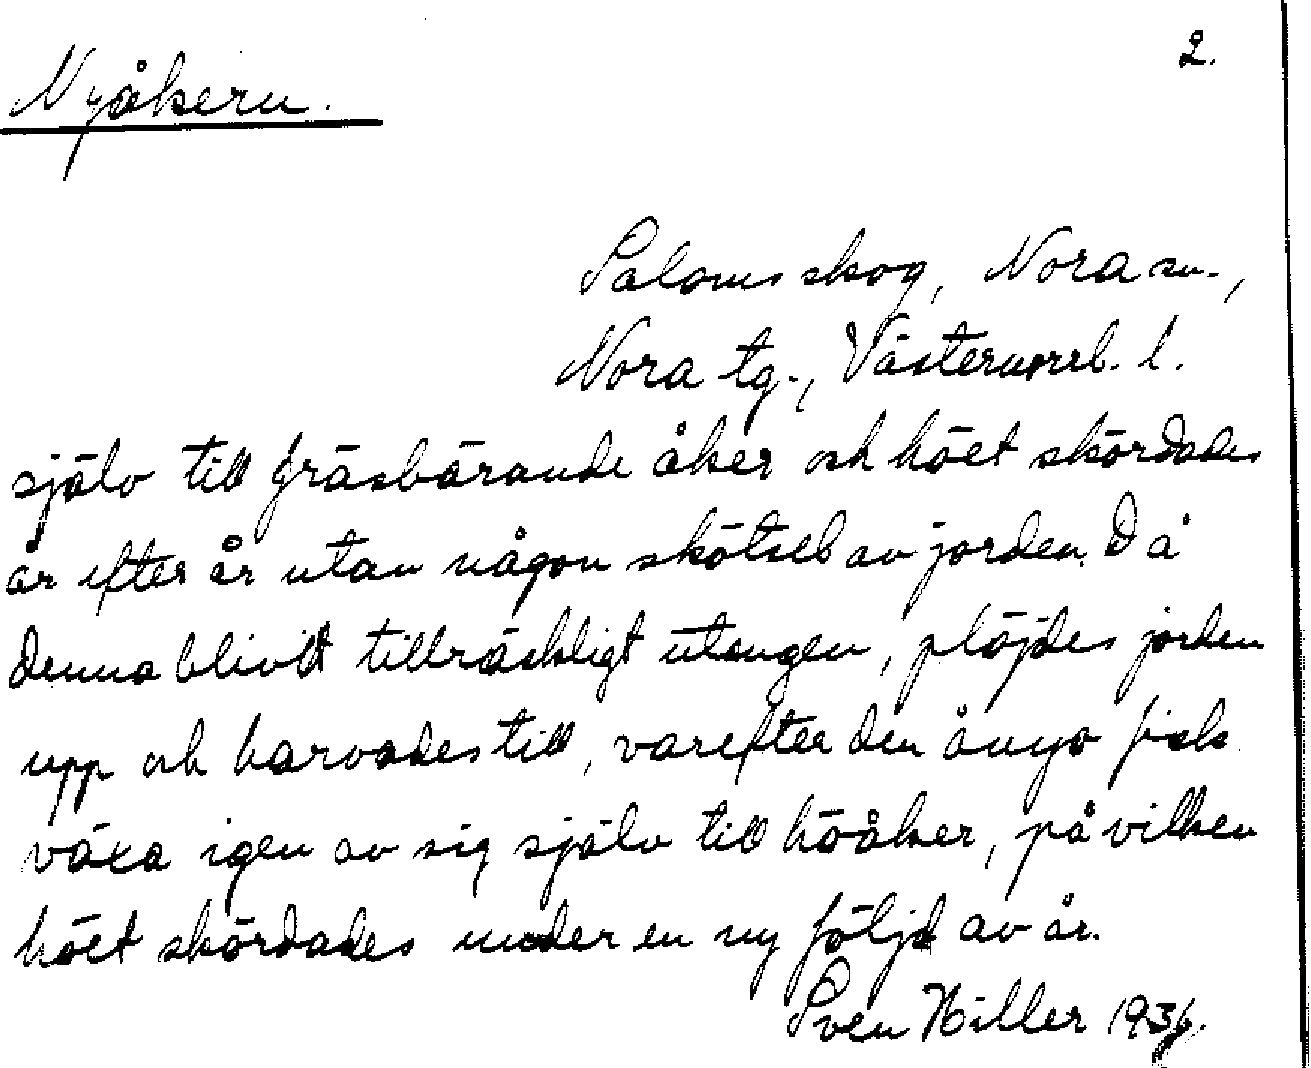 2.
Nyåkern.
Saloms skog, Nora sn.,
Nora tg., Västernorrl. l.
själv till gräsbärande åker och höet skördades
år efter år utan någon skötsel av jorden. Då
denna blivit tillräckligt utsugen, plöjdes jorden
upp och harvades till, varefter den ånyo fick
växa igen av sig själv till höåker, på vilken
höet skördades under en ny följd av år.
Sven Hiller 1936.